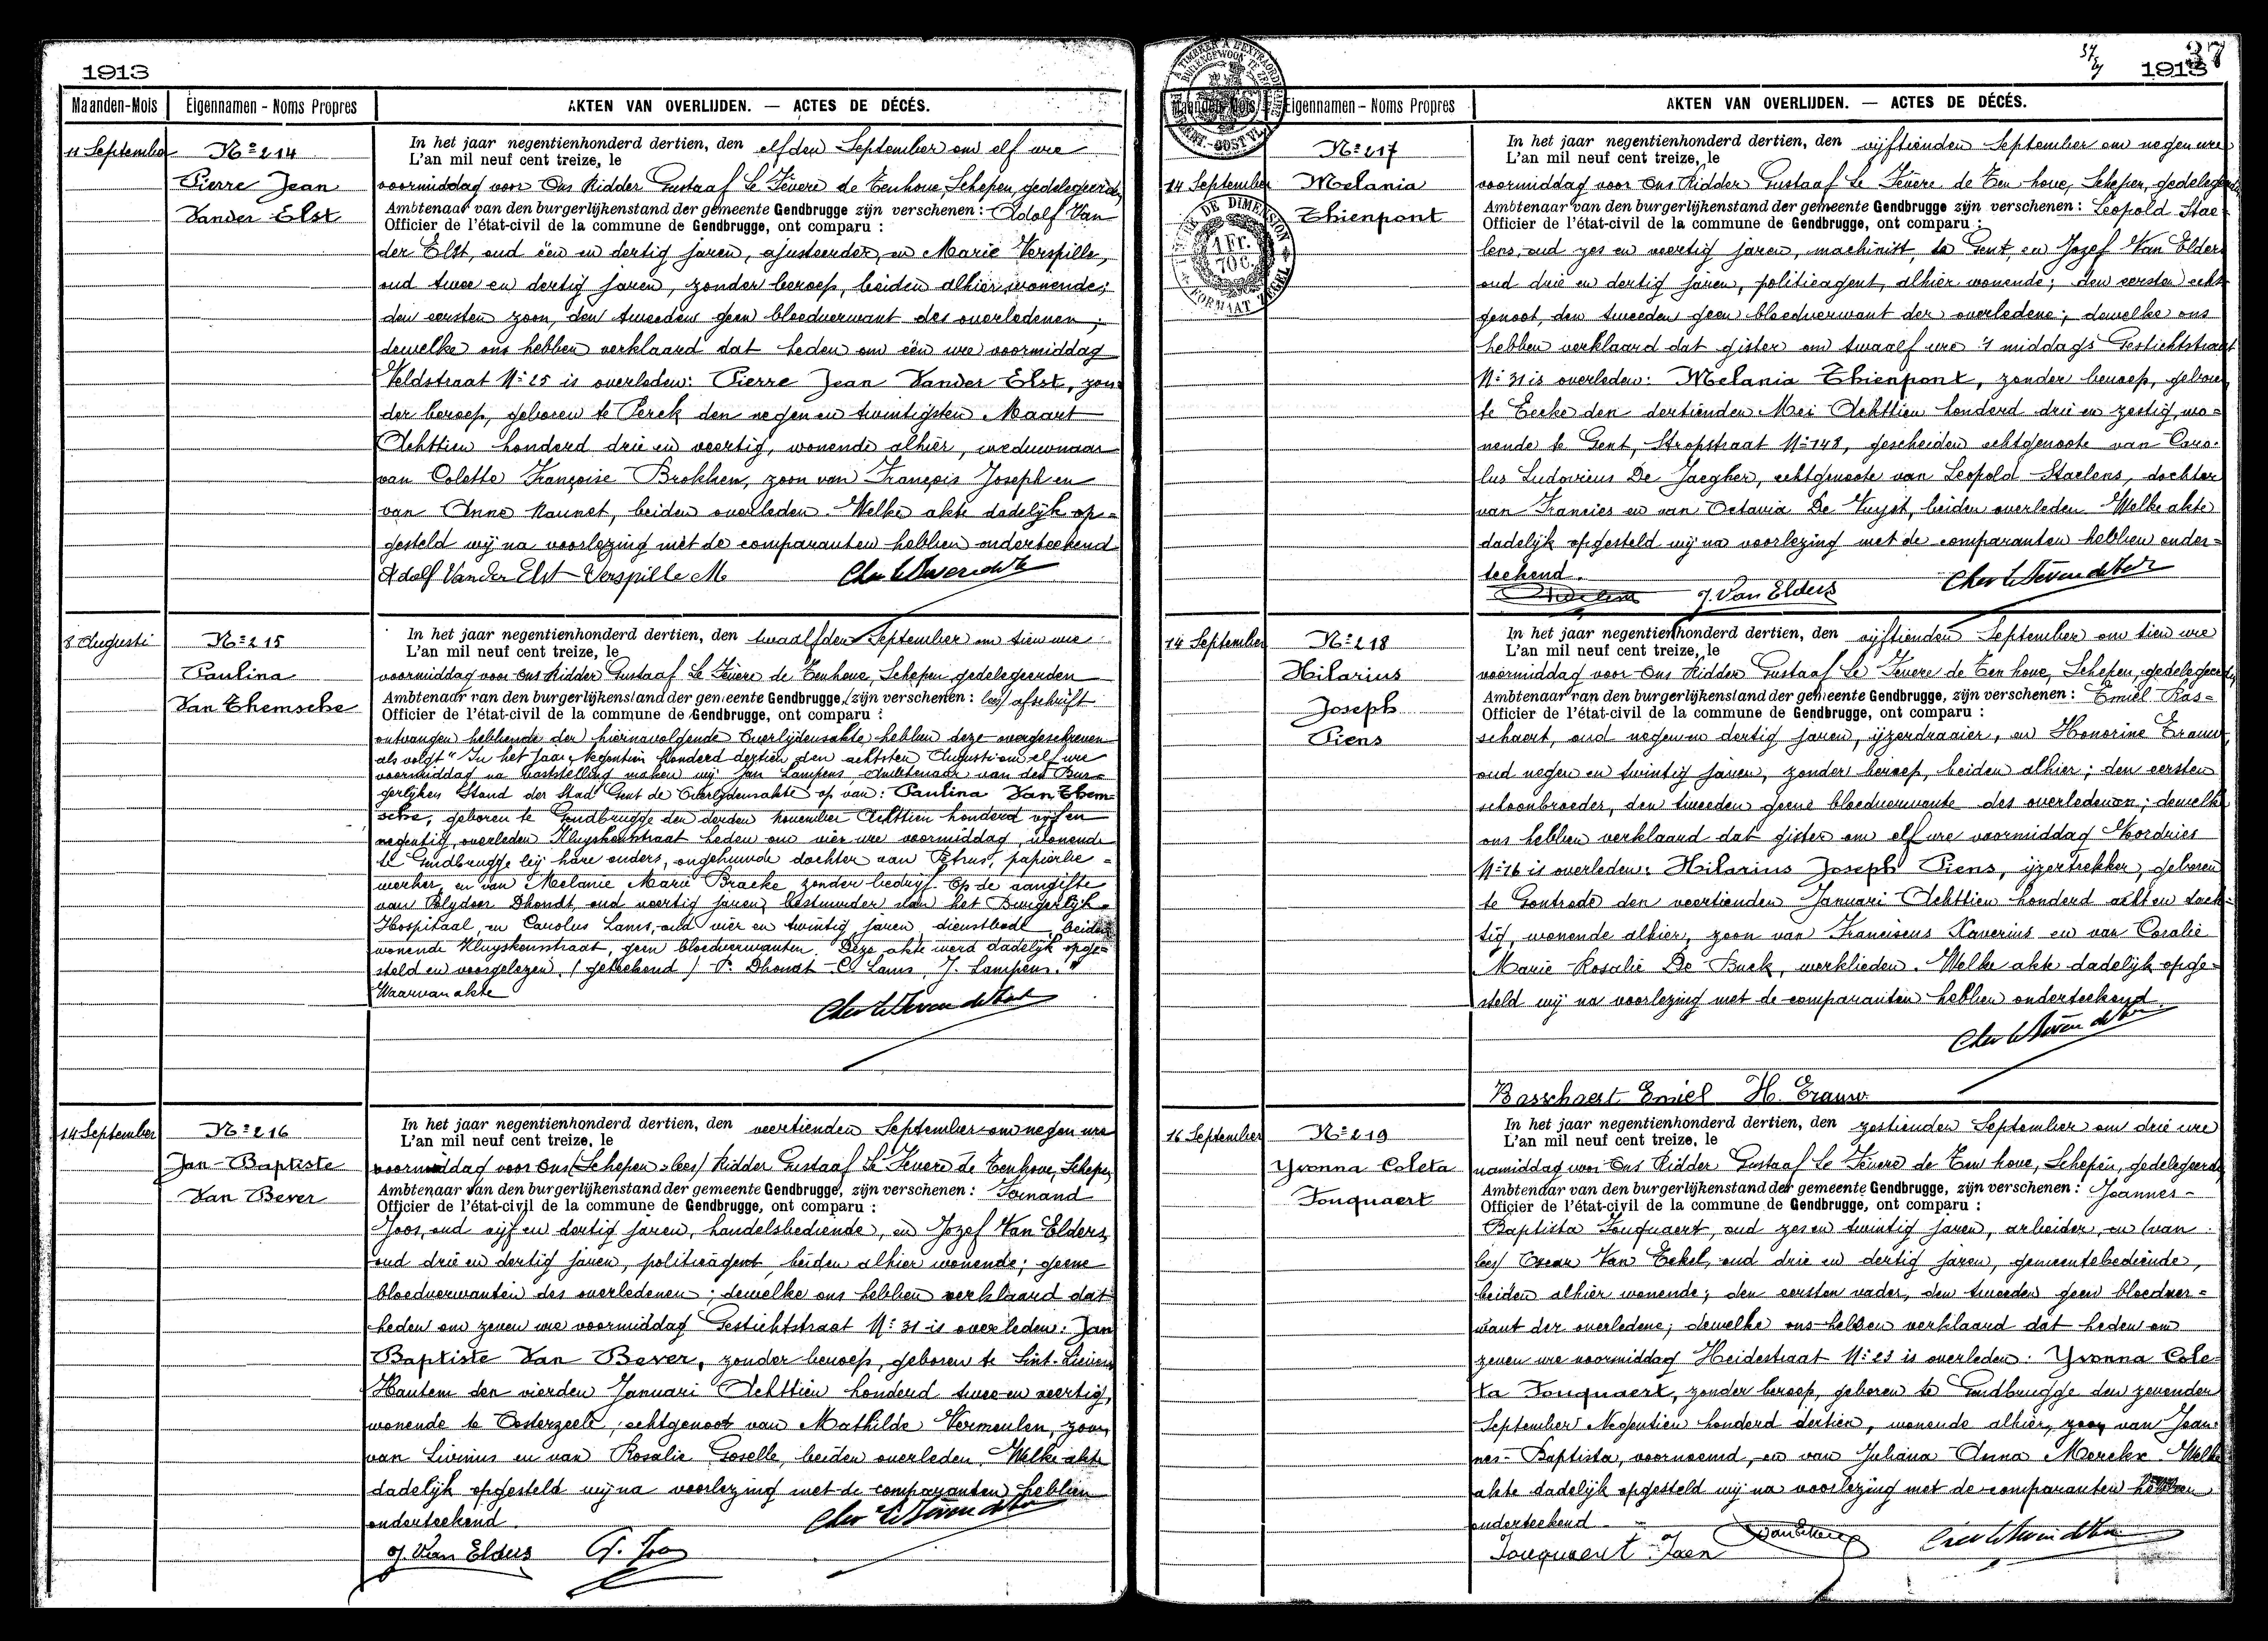 1913
Maanden-Mois Eigennamen - Noms Propres AKTEN VAN OVERLIJDEN. — ACTES DE DÉCÉS.
11 September
Nº 214
Pierre Jean
Vander Elst
In het jaar negentienhonderd dertien, den elfden September om elf ure
L'an mil neuf cent treize, le
voormiddag voor Ons Ridder Gustaaf Le Fèvere de Tenhove, Schepen, gedelegeerd
Ambtenaar van den burgerlijkenstand der gemeente Gendbrugge zijn verschenen: Adolf Van
Officier de l'état-civil de la commune de Gendbrugge, ont comparu :
der Elst, oud één en dertig jaren, ajusteerder, en Marie Verspille,
oud twee en dertig jaren, zonder beroep, beiden alhier wonende;
den eersten zoon, den tweeden geen bloedverwant des overledenen;
dewelke ons hebben verklaard dat heden om één ure voormiddag
Veldstraat Nº 25 is overleden: Pierre Jean Vander Elst, zon-
der beroep, geboren te Perck den negen en twintigsten Maart
Achttien honderd drie en veertig, wonende alhier, weduwnaar
van Colette Françoise Brokken, zoon van François Joseph en
van Anne Naunet, beiden overleden. Welke akte dadelijk op-
gesteld wij na voorlezing met de comparanten hebben onderteekend
Adolf Vander Elst Verspille M
8 Augusti
Nº 215
Paulina
Van Themsche
In het jaar negentienhonderd dertien, den twaalfden September om tien ure
L'an mil neuf cent treize, le
voormiddag voor Ons Ridder Gustaaf Le Fèvere de Tenhove, Schepen gedelegeerden
Ambtenaar van den burgerlijkenstand der gemeente Gendbrugge, zijn verschenen: lees) afschrift
Officier de l'état-civil de la commune de Gendbrugge, ont comparu :
ontvangen hebbende der hiernavolgende Overlijdensakte hebben deze overgeschreven
als volgt " In het Jaar Negentien honderd dertien den achtsten Augusti om elf ure
voormiddag na vaststelling maken wij Jan Lampens, Ambtenaar van den Bur-
gerlijken Stand der Stad Gent de Overlijdensakte op van: Paulina Van Them-
sche, geboren te Gendbrugge den derden november Achttien honderd vijf en
negentig, overleden Kluyskensstraat heden om vier ure voormiddag, wonende
te Gendbrugge bij hare ouders, ongehuwde dochter van Petrus, papierbe-
werker, en van Melanie Marie Braeke zonder bedrijf. Op de aangifte
van Polydoor Dhondt, oud veertig jaren, bestuurder van het Burgerlijk
Hospitaal, en Carolus Lams, oud vier en twintig jaren, dienstbode, beiden
wonende Kluyskensstraat, geen bloedverwanten. Deze akte werd dadelijk opge-
steld en voorgelezen. (geteekend) P. Dhondt - C. Lams, J. Lampens."
Waarvan akte
14 September
Nº 216
Jan-Baptiste
Van Bever
In het jaar negentienhonderd dertien, den veertienden September om negen ure
L'an mil neuf cent treize, le
voormiddag voor Ons (Schepen - lees) Ridder Gustaaf Le Fèvere de Tenhove, Schepen
Ambtenaar van den burgerlijkenstand der gemeente Gendbrugge, zijn verschenen: Fernand
Officier de l'état-civil de la commune de Gendbrugge, ont comparu :
Joos, oud vijf en dertig jaren, handelsbediende, en Jozef Van Elders,
oud drie en dertig jaren, politieagent, beiden alhier wonende; geene
bloedverwanten des overledenen; dewelke ons hebben verklaard dat
heden om zeven ure voormiddag Gestichtstraat Nº 31 is overleden: Jan
Baptiste Van Bever, zonder beroep, geboren te Sint-Lievens
Hautem den vierden Januari Achttien honderd twee en veertig,
wonende te Oosterzeele, echtgenoot van Mathilde Vermeulen, zoon
van Livinus en van Rosalie Goselle, beiden overleden. Welke akte
dadelijk opgesteld wij na voorlezing met de comparanten hebben
onderteekend.
J. Van Elders
37
1913
Maanden-Mois Eigennamen - Noms Propres AKTEN VAN OVERLIJDEN. — ACTES DE DÉCÉS.
14 September
Nº 217
Melania
Thienpont
In het jaar negentienhonderd dertien, den vijftienden September om negen ure
L'an mil neuf cent treize, le
voormiddag voor Ons Ridder Gustaaf Le Fèvere de Ten hove, Schepen, gedelegeerd
Ambtenaar van den burgerlijkenstand der gemeente Gendbrugge zijn verschenen: Leopold Stae-
Officier de l'état-civil de la commune de Gendbrugge, ont comparu :
lens, oud zes en veertig jaren, machinist, te Gent, en Jozef Van Elders
oud drie en dertig jaren, politieagent, alhier wonende; den eersten echt-
genoot, den tweeden geen bloedverwant der overledene; dewelke ons
hebben verklaard dat gister om twaalf ure 's middags Gestichtstraat
Nº 31 is overleden: Melania Thienpont, zonder beroep, geboren
te Eecke den dertienden Mei Achttien honderd drie en zestig, wo-
nende te Gent, Stropstraat Nº 148, gescheiden echtgenoote van Caro-
lus Ludovicus De Jaegher, echtgenoote van Leopold Staelens, dochter
van Francies en van Octavia De Vuyst, beiden overleden. Welke akte
dadelijk opgesteld wij na voorlezing met de comparanten hebben onder-
teekend.
J. Van Elders
14 September
Nº 218
Hilarius
Joseph
Piens
In het jaar negentienhonderd dertien, den vijftienden September om tien ure
L'an mil neuf cent treize, le
voormiddag voor Ons Ridder Gustaaf Le Fevere de Ten hove, Schepen, gedelegeerd
Ambtenaar van den burgerlijkenstand der gemeente Gendbrugge, zijn verschenen: Emiel Bas-
Officier de l'état-civil de la commune de Gendbrugge, ont comparu :
schaert, oud negen en dertig jaren, ijzerdraaier, en Honorine Trauw,
oud negen en twintig jaren, zonder beroep, beiden alhier; den eersten
schoonbroeder, den tweeden geene bloedverwante des overledenen; dewelke
ons hebben verklaard dat gister om elf ure voormiddag Noordries
Nº 16 is overleden: Hilarius Joseph Piens, ijzertrekker, geboren
te Gontrode den veertienden Januari Achttien honderd acht en tach-
tig, wonende alhier, zoon van Franciscus Xaverius en van Coralie
Marie Rosalie De Buck, werklieden. Welke akte dadelijk opge-
steld wij na voorlezing met de comparanten hebben onderteekend.
Basschaert Emiel H. Trauw
16 September
Nº 219
Yvonna Coleta
Fouquaert
In het jaar negentienhonderd dertien, den zestienden September om drie ure
L'an mil neuf cent treize, le
namiddag voor Ons Ridder Gustaaf Le Fèvere de Ten hove, Schepen, gedelegeerd
Ambtenaar van den burgerlijkenstand der gemeente Gendbrugge, zijn verschenen: Joannes-
Officier de l'état-civil de la commune de Gendbrugge, ont comparu :
Baptista Fouquaert, oud zes en twintig jaren, arbeider, en (van
lees) Oscar Van Eekel, oud drie en dertig jaren, gemeentebediende,
beiden alhier wonende; den eersten vader, den tweeden geen bloedver-
want der overledene; dewelke ons hebben verklaard dat heden om
zeven ure voormiddag Heidestraat Nº 23 is overleden: Yvonna Cole-
ta Fouquaert, zonder beroep, geboren te Gendbrugge den zevenden
September Negentien honderd dertien, wonende alhier, zoon van Joan-
nes-Baptista, voornoemd, en van Juliana Anna Merckx. Welke
akte dadelijk opgesteld wij na voorlezing met de comparanten hebben
onderteekend
Fouquaert Joan